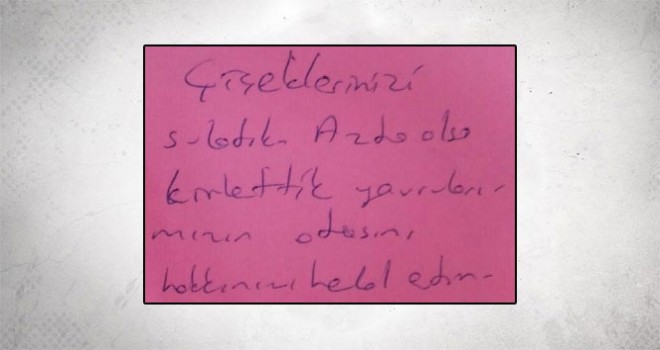 Çiçeklerinizi
suladık. Azda olsa
kirlettik yavruları-
nızın odasını
hakkınızı helal edin.